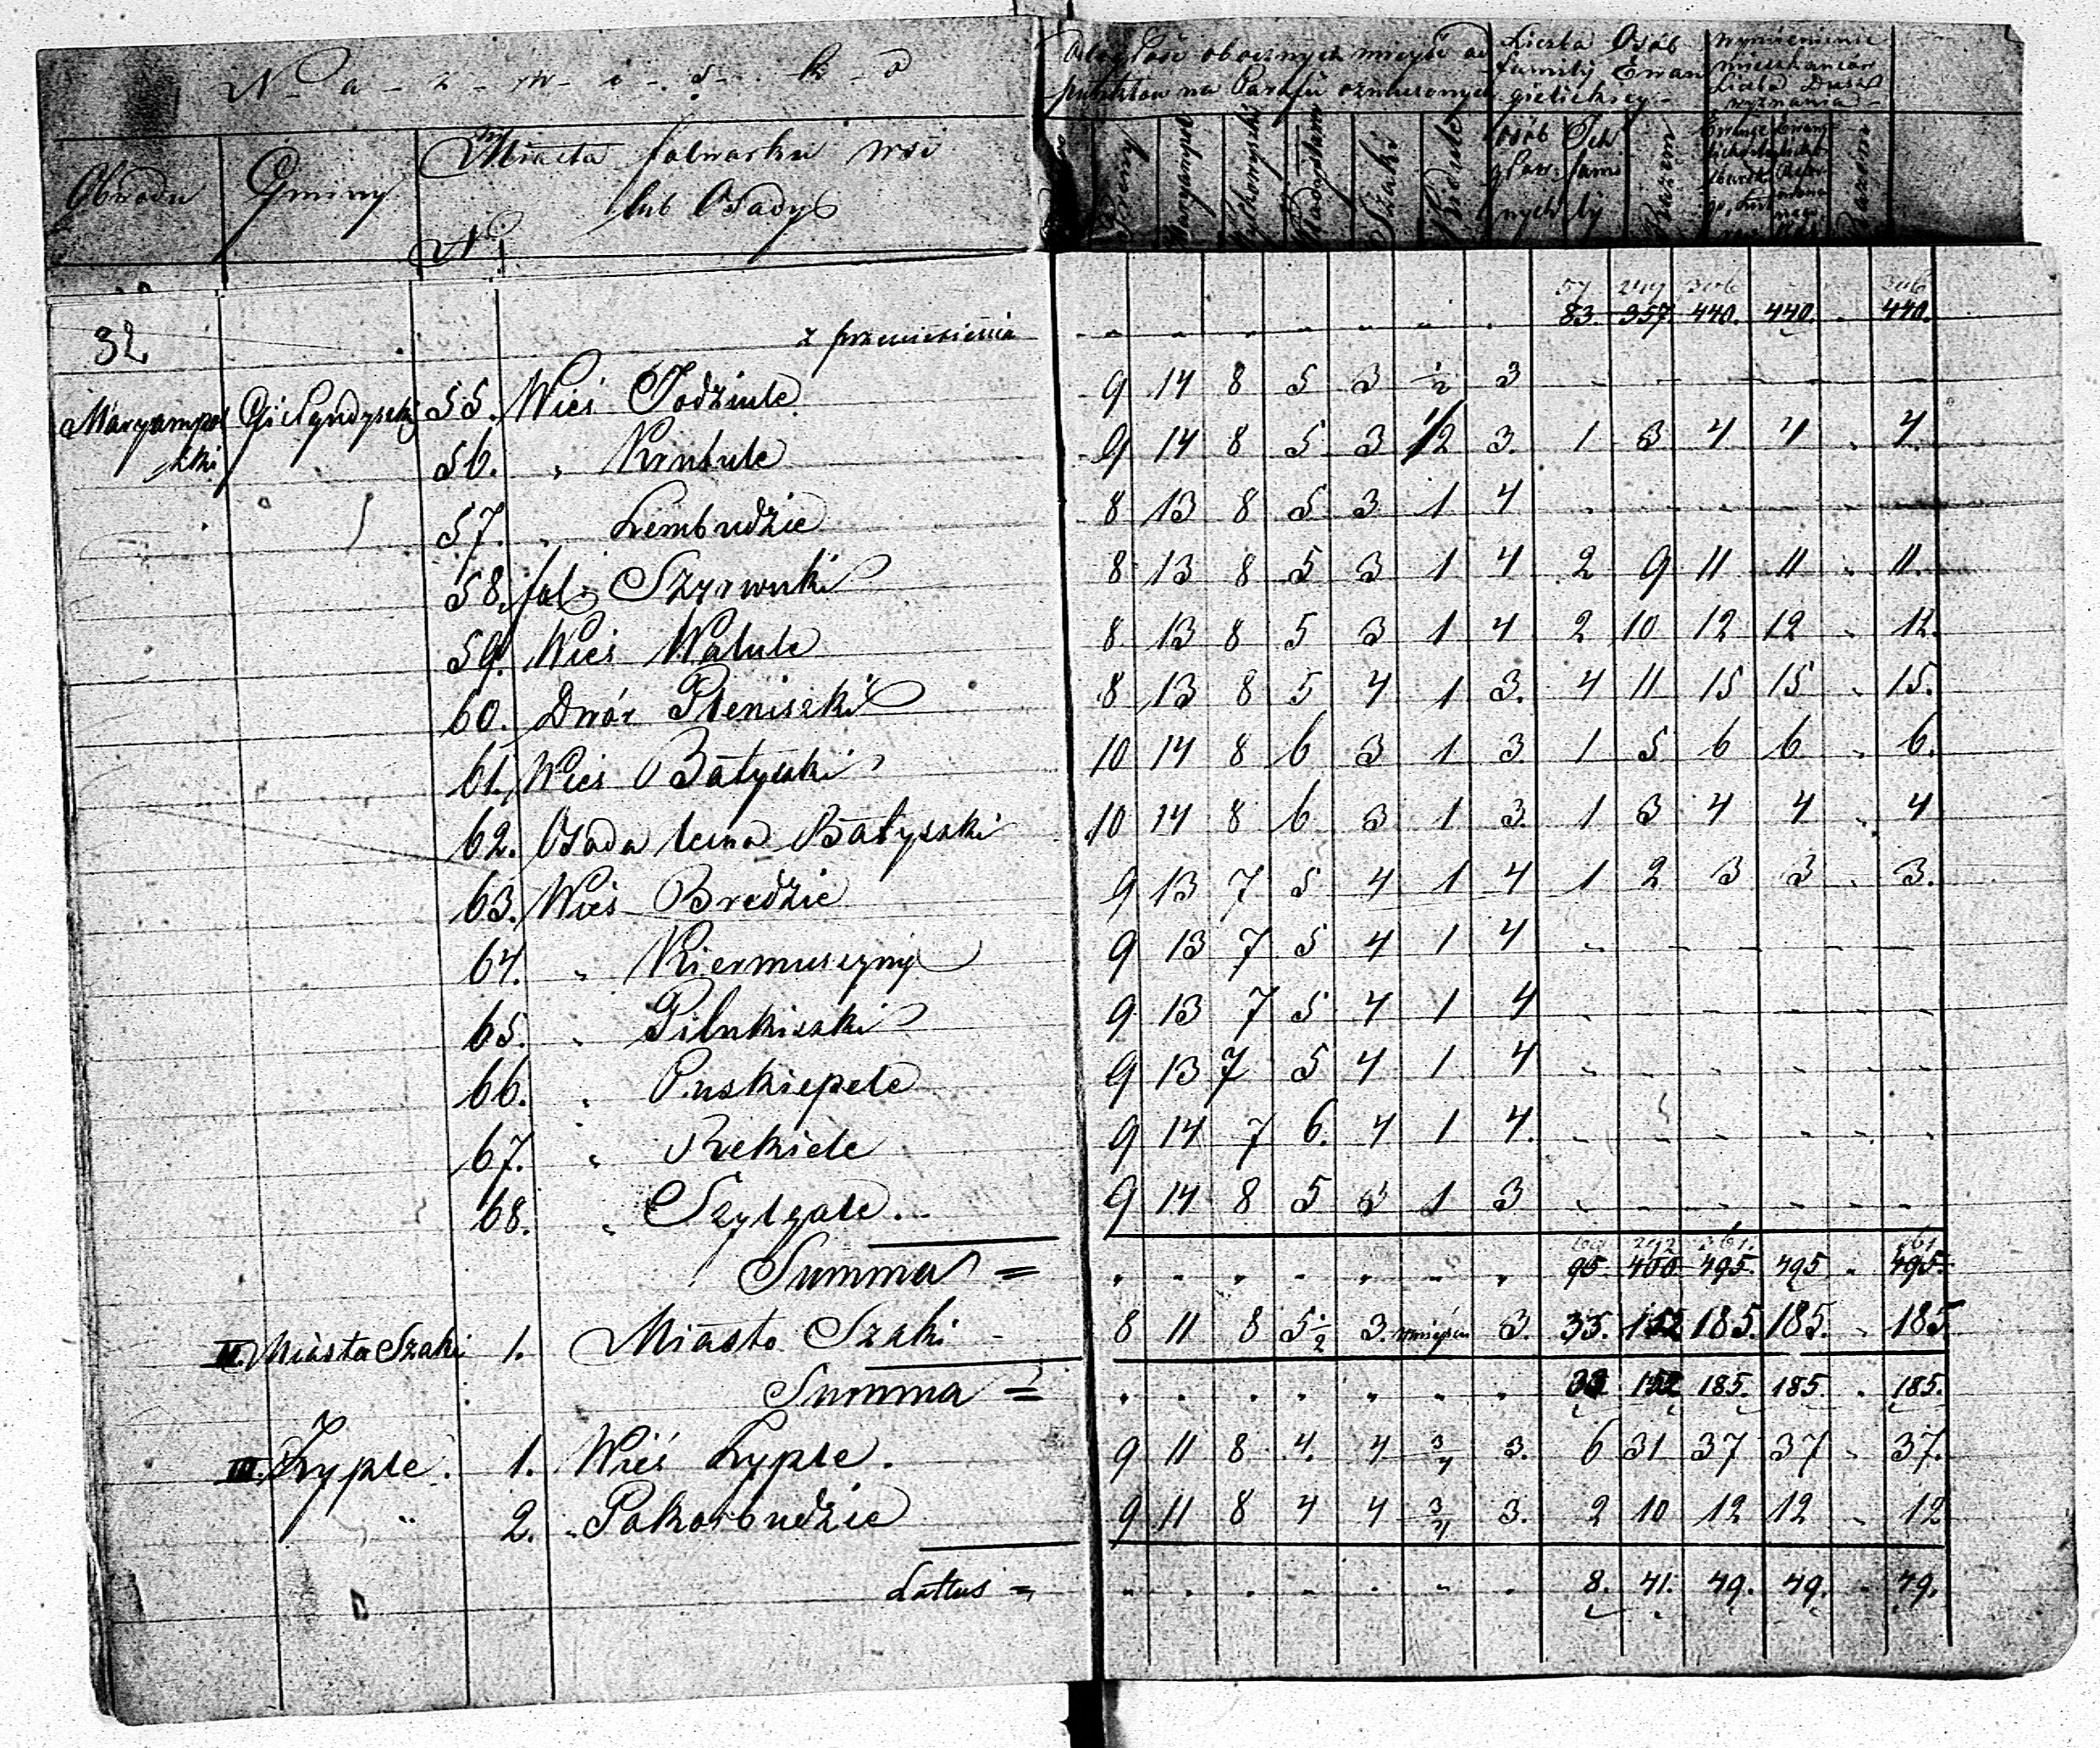 N - a - z - w - i - s - k - o
Odległość obocznych mieysc od
punktów na Parafii oznaczonych
Liczba Osób
familij Ewan
gielickiey
Wymienienie
mieszkańców
Liczba Dusz
wyznania
Obwodu Gminy Miasta folwarku wsi
lub Osady
N
Maryampol Szaki
Osób Ich Razem
głow fami
nych lij
Razem
57 249 306 306
32 z przeniesienia " " " " " " " 83. 357. 440. 440. " 440.
55. Wieś Jodziule 9 14 8 5 3 1/2 3 - - - - - -
Maryampol
ski
56. " Krusule 9 14 8 5 3 1/2 3. 1 3 4 4 " 4.
57. " Lembudzie 8 13 8 5 3 1 4 - - - - - -
58. fol. Szyrwuki 8 13 8 5 3 1 4 2 9 11 11 " 11.
59. Wieś Watule 8 13 8 5 3 1 4 2 10 12 12 " 12.
60. Dwór Pleniszki 8 13 8 5 4 1 3. 4 11 15 15 " 15.
61. Wieś Batyszki 10 14 8 6 3 1 3 1 5 6 6 " 6.
62. Osada leśna Batyszki 10 14 8 6 3 1 3. 1 3 4 4 " 4
63. Wieś Bredzie 9 13 7 5 4 1 4 1 2 3 3 " 3.
64. " Kiermuszyny 9 13 7 5 4 1 4 - - - - - -
65. " Pilukiszki 9 13 7 5 4 1 4 - - - - - -
66. " Puskiepele 9 13 7 5 4 1 4 - - - - - -
67. " Rekiele 9 14 7 6. 4 1 4. - - - - - -
68. " Szylgale 9 14 8 5 3 1 3 - - - - - -
292 361. 361
Summa = " " " " " " " 95. 400 495. 495 " 495.
II. Miasto Szaki 1. Miasto Szaki 8 11 8 5 1/2 3. wmiejscu 3. 33. 152 185. 185. " 185
Summa = " " " " " " " 33 152 185. 185. " 185.
III. Zyple. 1. Wieś Zyple. 9 11 8 4. 4 3/4 3. 6 31 37 37 " 37.
" 2. " Pokarbudzie 9 11 8 4 4 3/4 3. 2 10 12 12 " 12
Lattus = " " " " " " " 8. 41. 49. 49. " 49.